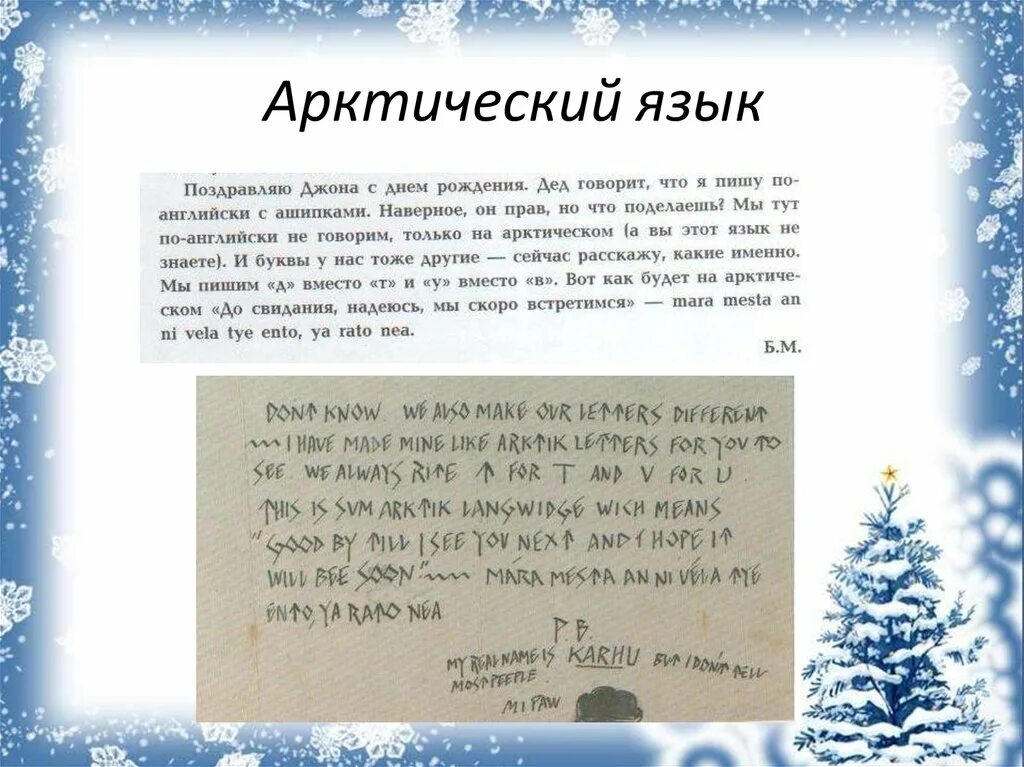 Арктический язык
Поздравляю Джона с днем рождения. Дед говорит, что я пишу по-
английски с ашипками. Наверное, он прав, но что поделаешь? Мы тут
по-английски не говорим, только на арктическом (а вы этот язык не
знаете). И буквы у нас тоже другие — сейчас расскажу, какие именно.
Мы пишим «д» вместо «т» и «у» вместо «в». Вот как будет на арктиче-
ском «До свидания, надеюсь, мы скоро встретимся» — mara mesta an
ni vela tye ento, ya rato nea.
Б.М.
DONT KNOW WE ALSO MAKE OUR LETTERS DIFFERENT
I HAVE MADE MINE LIKE ARKTIK LETTERS FOR YOU TO
SEE WE ALWAYS RITE ↑ FOR T AND V FOR U
THIS IS SVM ARKTIK LANGWIDGE WICH MEANS
"GOOD BY TILL I SEE YOU NEXT AND I HOPE IT
WILL BEE SOON" MÁRA MESTA AN NI VÉLA TYE
ENTO, YA RATO NEA
P.B.
MY REAL NAME IS KARHU BUT I DON'T TELL
MOST PEEPLE
MI PAW